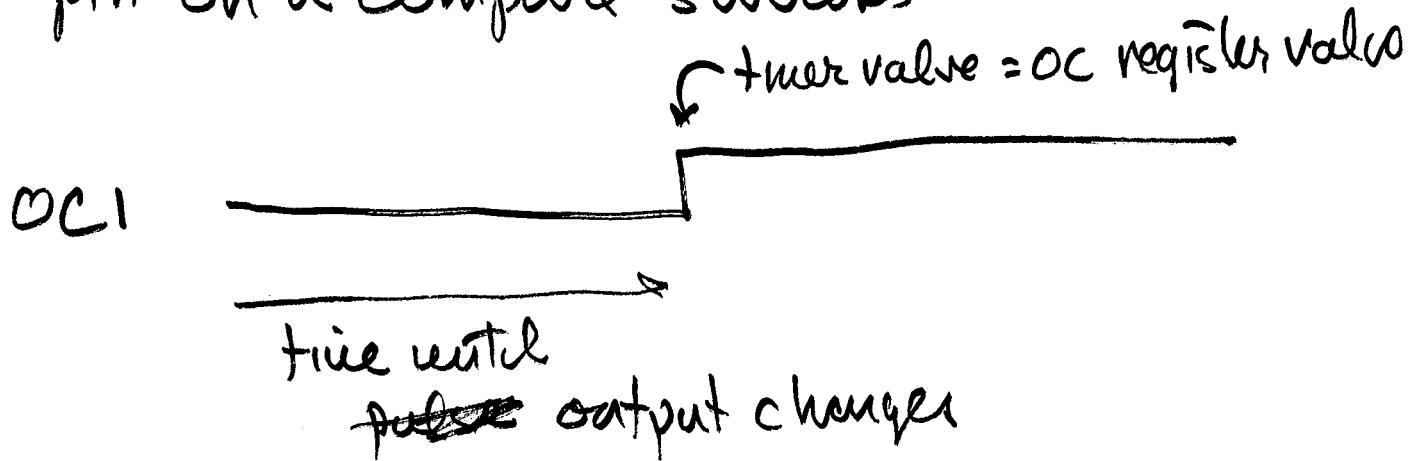 pin on a compare success
timer value = OC register value
OC1
time until
pulse output changes